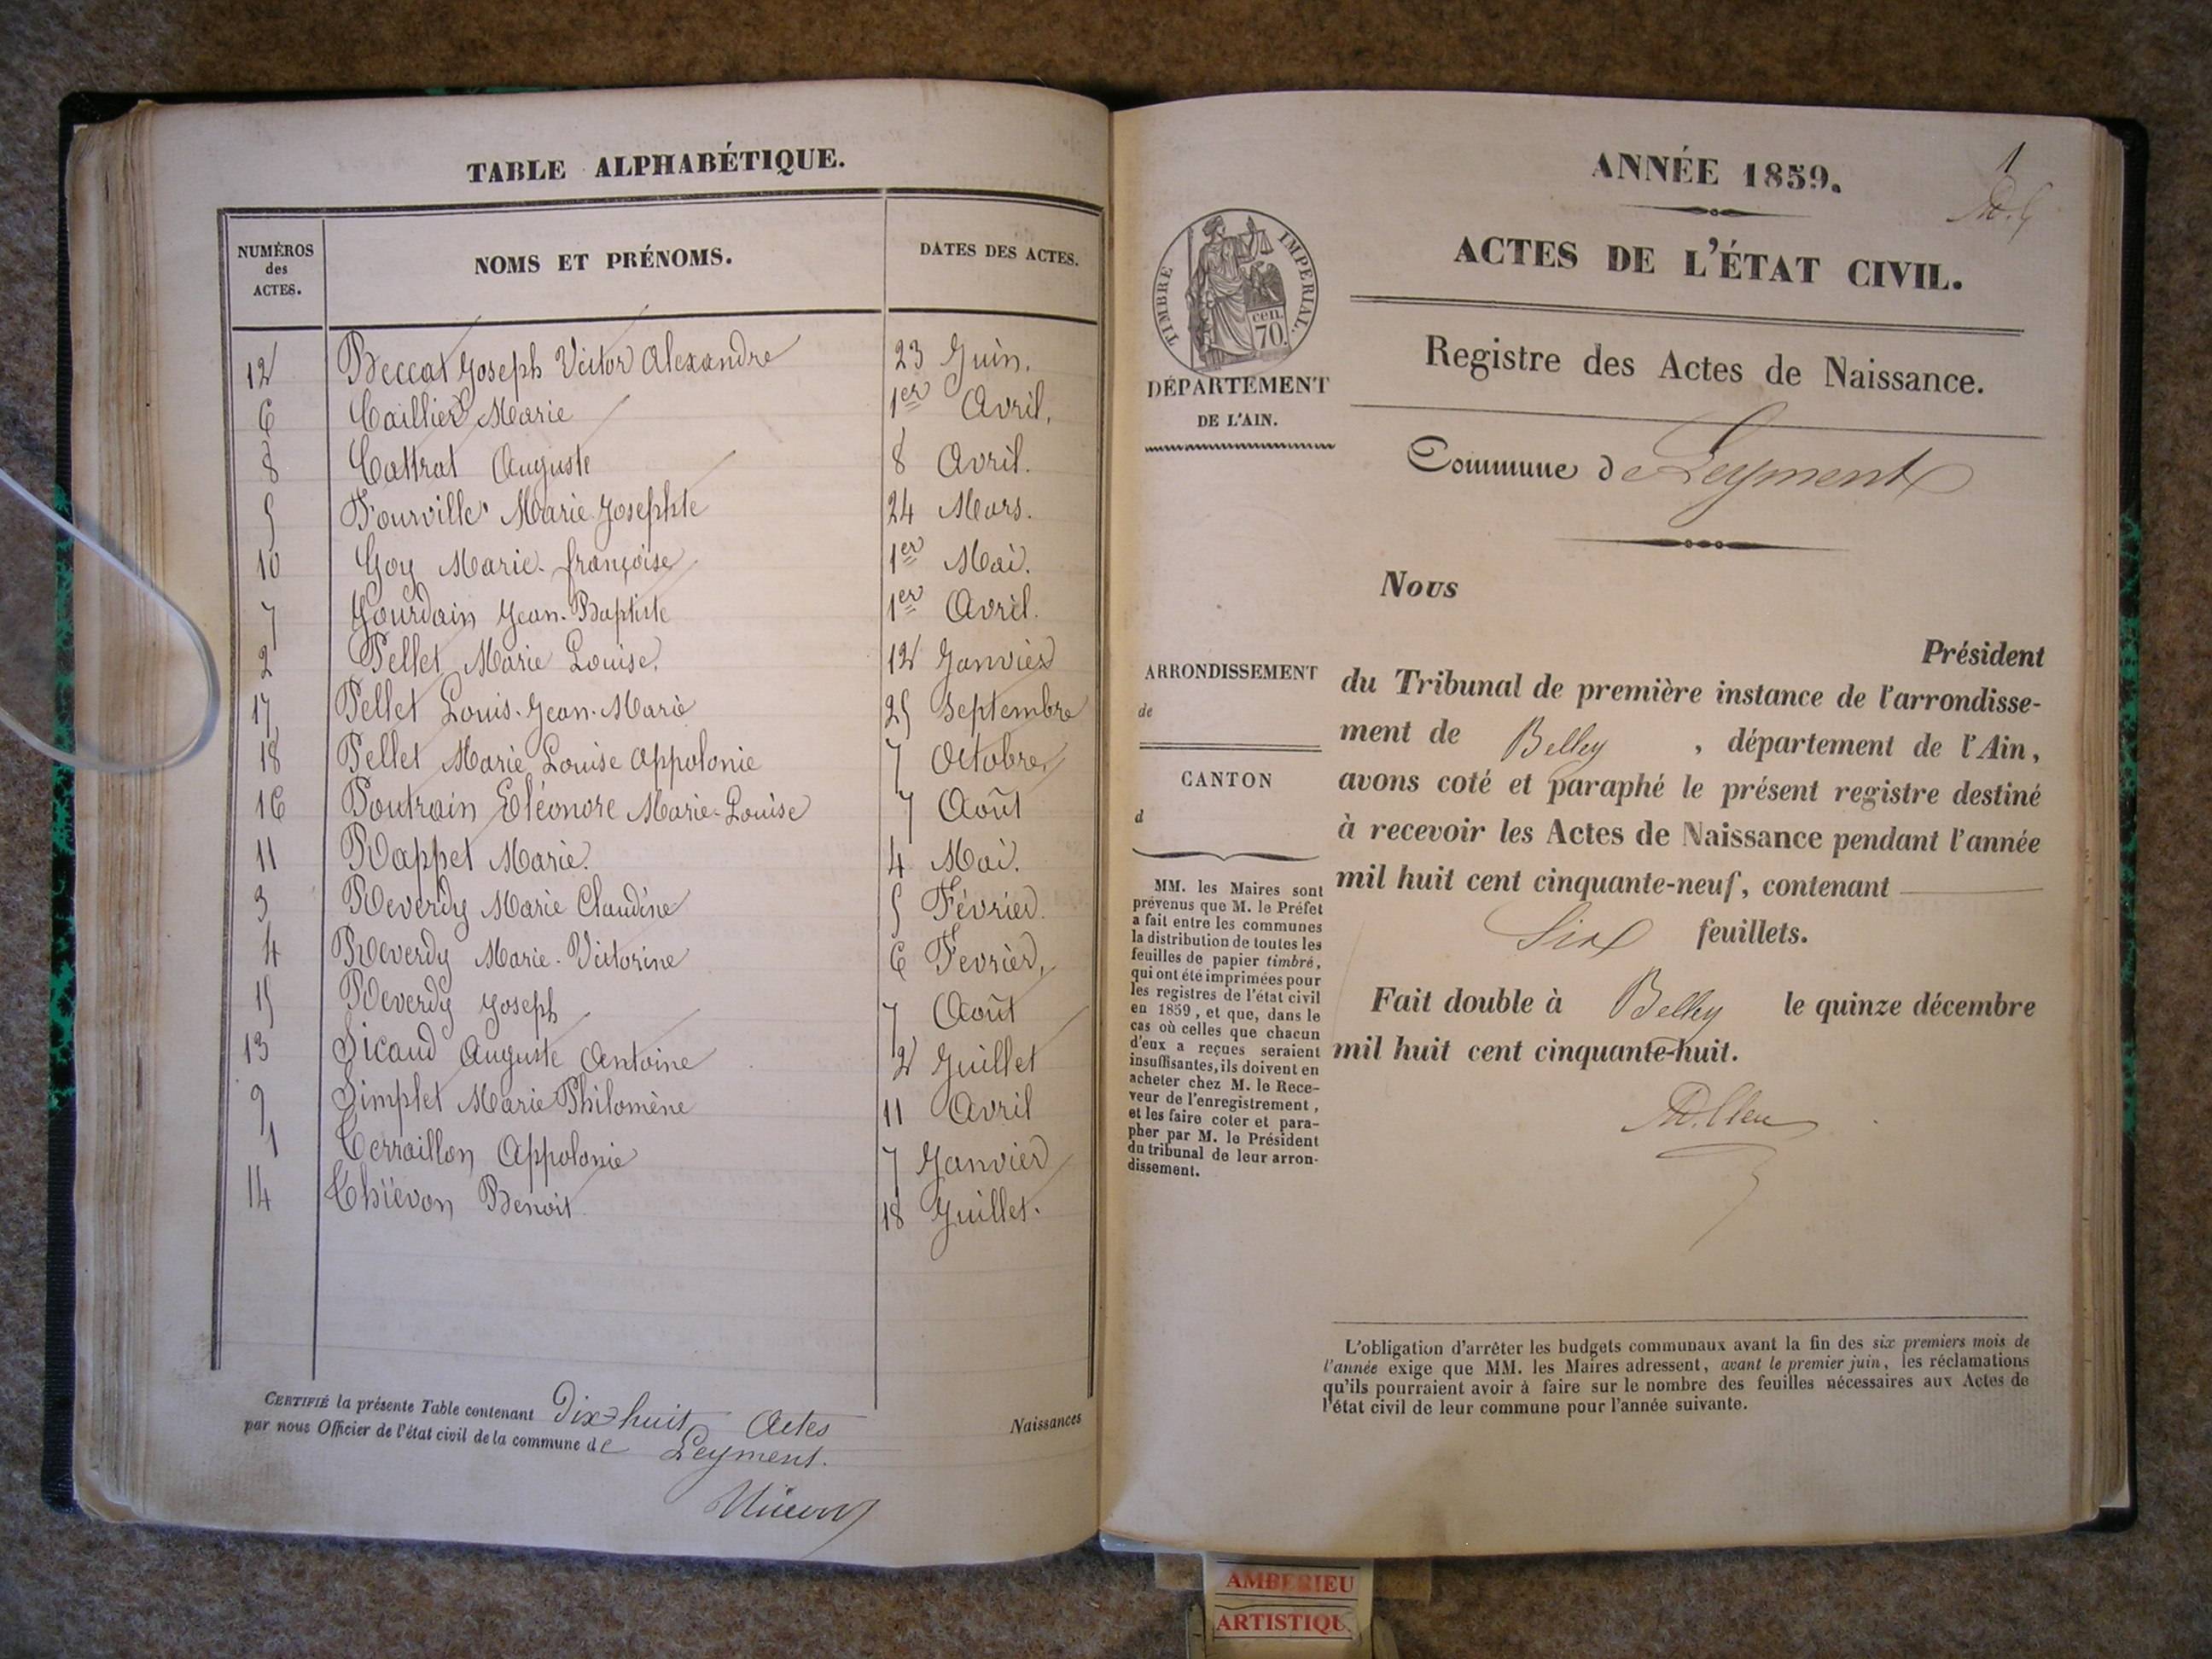 TABLE ALPHABÉTIQUE.
NUMÉROS des ACTES. NOMS ET PRÉNOMS. DATES DES ACTES.
12 Beccat Joseph Victor Alexandre 23 Juin.
6 Caillier Marie 1er Avril.
8 Cattrat Auguste 8 Avril.
5 Fourville Marie Josephte 24 Mars.
10 Goy Marie-françoise 1er Mai.
7 Jourdain Jean-Baptiste 1er Avril.
2 Pellet Marie Louise. 12 Janvier
17 Pellet Louis-Jean-Marie 25 Septembre
18 Pellet Marie Louise Appolonie 7 Octobre
16 Poutrain Eléonore Marie-Louise 7 Août
11 Rappet Marie. 4 Mai.
3 Reverdy Marie Claudine 5 Février.
4 Reverdy Marie-Victorine 6 Fevrier.
15 Reverdy Joseph 7 Août
13 Sicaud Auguste Antoine 2 Juillet
9 Simplet Marie Philomène 11 Avril
1 Terraillon Appolonie 7 Janvier
14 Thiévon Benoit 18 Juillet.
CERTIFIÉ la présente Table contenant Dix-huit Actes Naissances
par nous Officier de l'état civil de la commune de Leyment.
1
ANNÉE 1859.
ACTES DE L'ÉTAT CIVIL.
TIMBRE IMPERIAL.
cen.
70.
DÉPARTEMENT
DE L'AIN.
Registre des Actes de Naissance.
Commune de Leyment
Nous
Président
du Tribunal de première instance de l'arrondisse-
ment de Belley, département de l'Ain,
avons coté et paraphé le présent registre destiné
à recevoir les Actes de Naissance pendant l'année
mil huit cent cinquante-neuf, contenant
Six feuillets.
Fait double à Belley le quinze décembre
mil huit cent cinquante-huit.
ARRONDISSEMENT
de
CANTON
d
MM. les Maires sont
prévenus que M. le Préfet
a fait entre les communes
la distribution de toutes les
feuilles de papier timbré,
qui ont été imprimées pour
les registres de l'état civil
en 1859, et que, dans le
cas où celles que chacun
d'eux a reçues seraient
insuffisantes, ils doivent en
acheter chez M. le Rece-
veur de l'enregistrement,
et les faire coter et para-
pher par M. le Président
du tribunal de leur arron-
dissement.
L'obligation d'arrêter les budgets communaux avant la fin des six premiers mois de
l'année exige que MM. les Maires adressent, avant le premier juin, les réclamations
qu'ils pourraient avoir à faire sur le nombre des feuilles nécessaires aux Actes de
l'état civil de leur commune pour l'année suivante.
AMBERIEU
ARTISTIQU